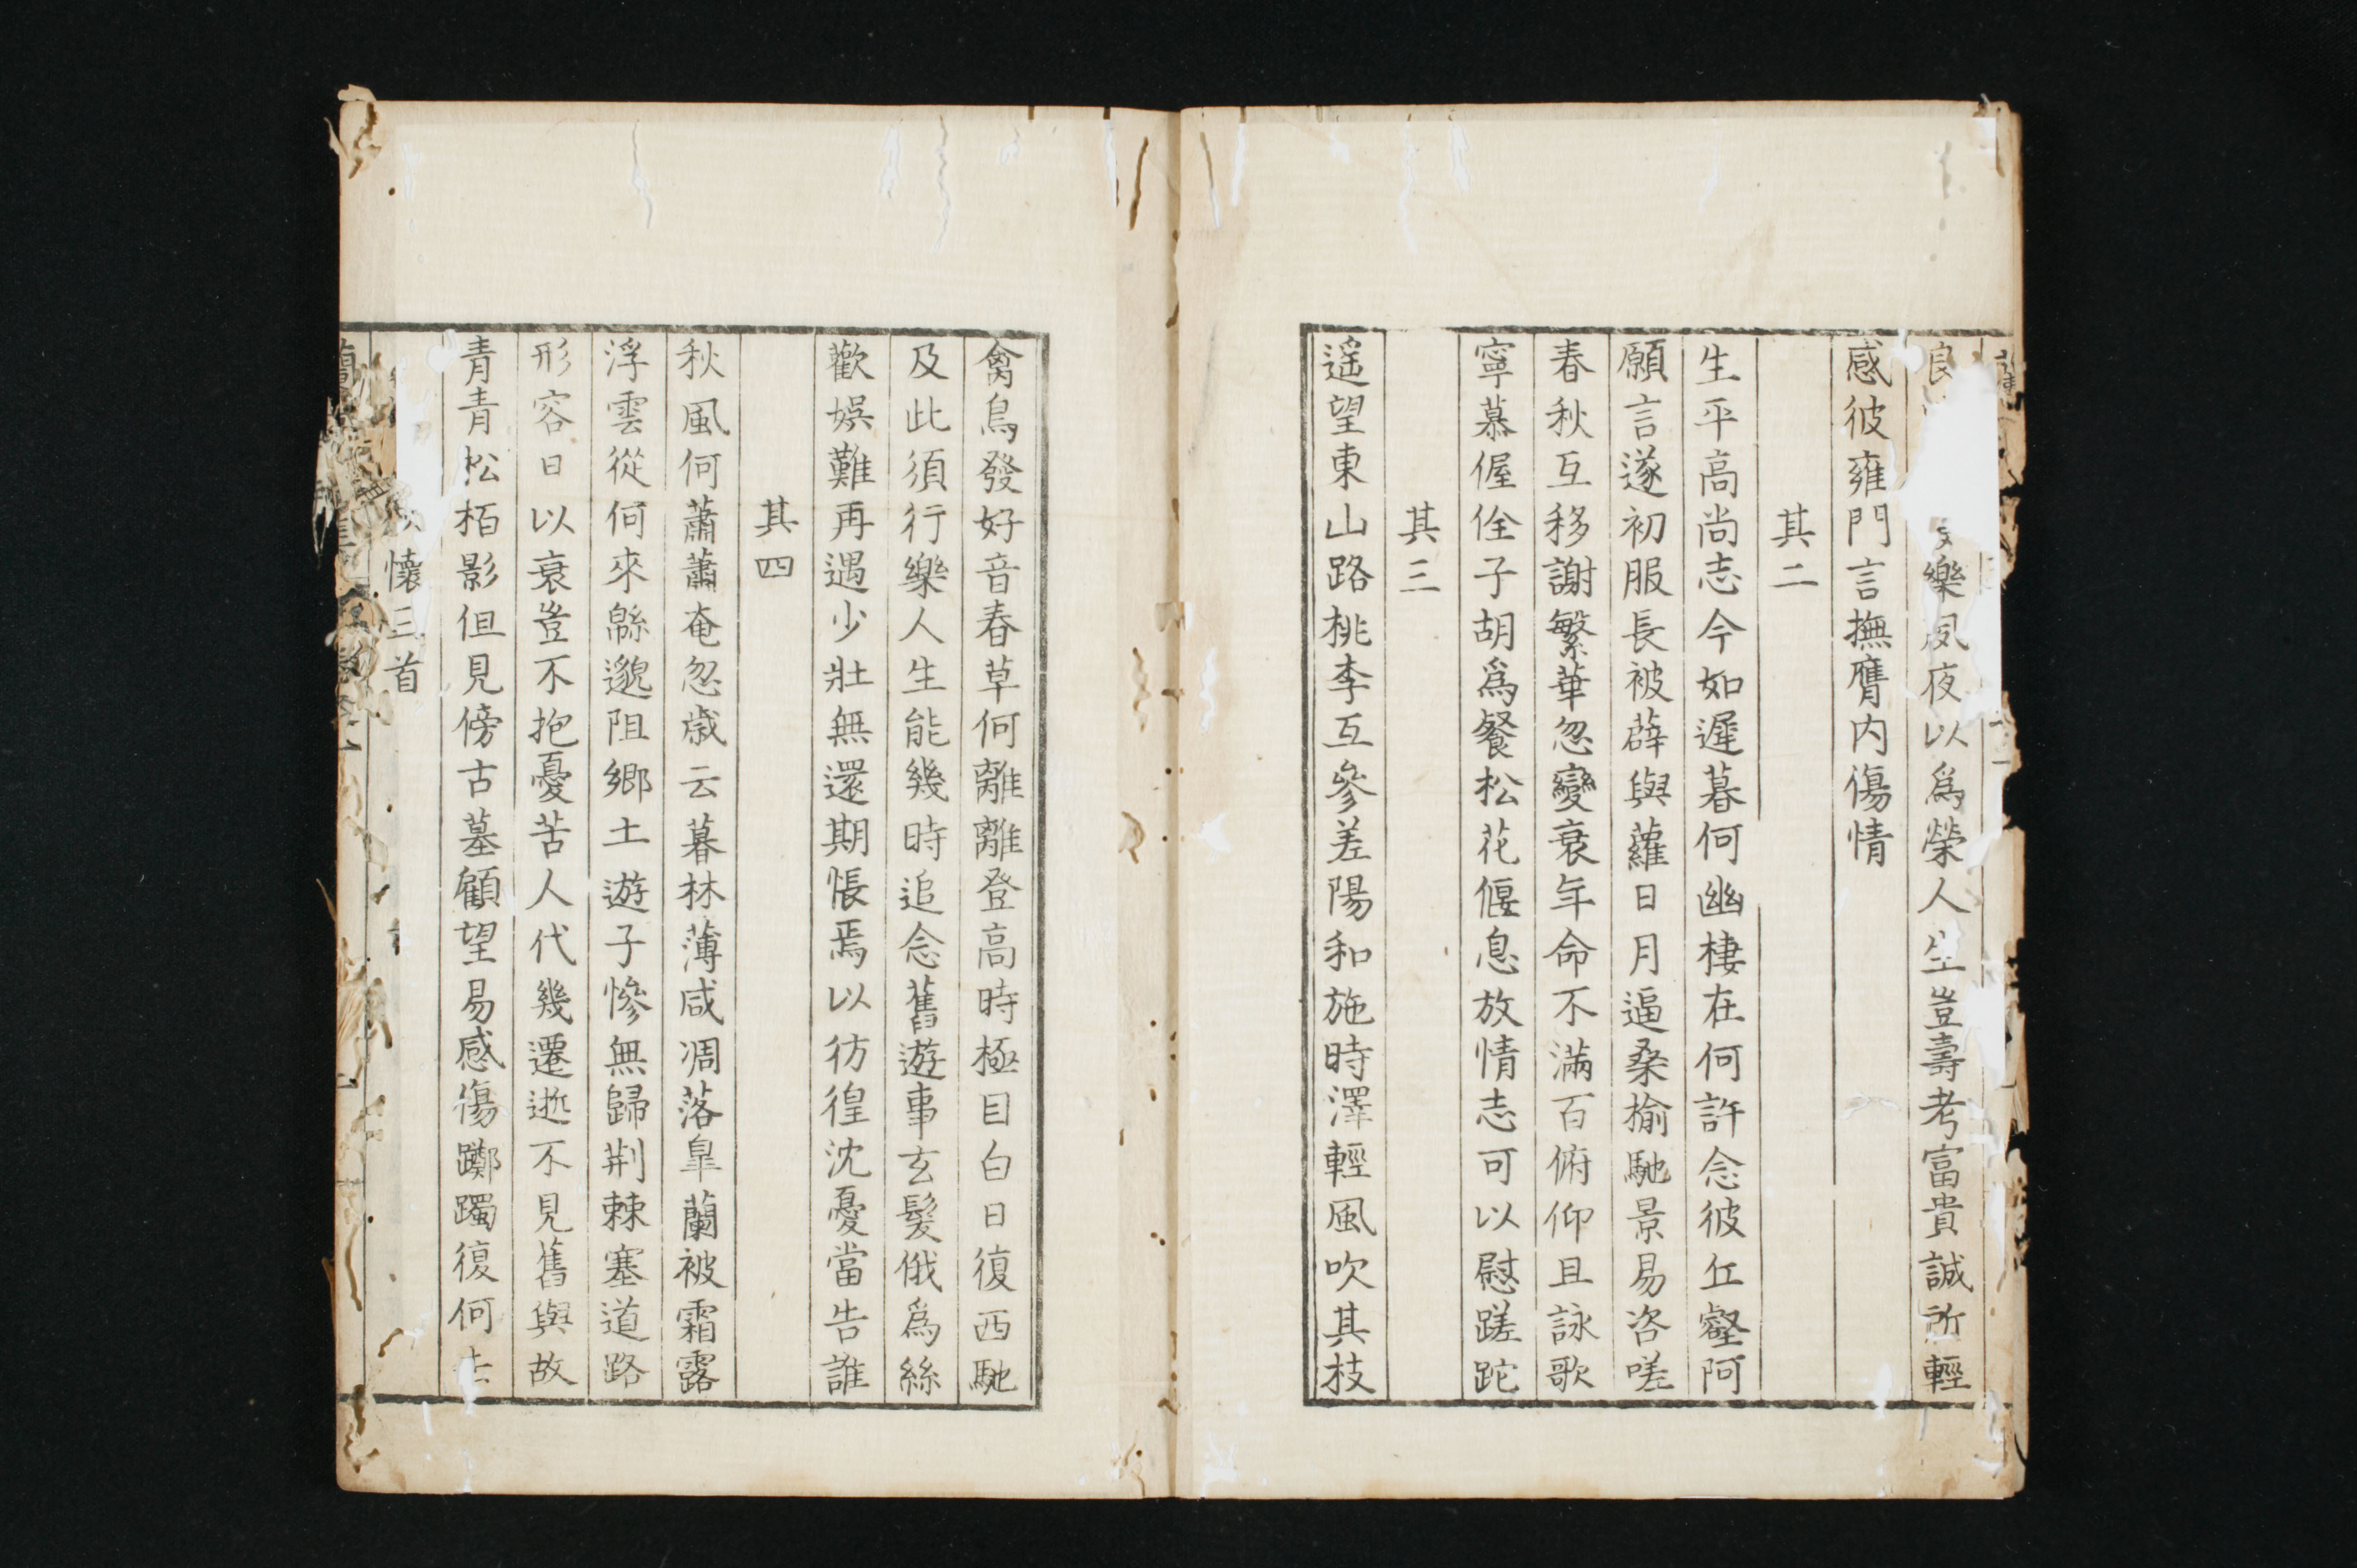 樂夙夜以爲榮人生豈壽考富貴誠所輕
感彼雍門言撫膺内傷情
其二
生平高尚志今如遲暮何幽棲在何許念彼丘壑阿
願言遂初服長被薜與蘿日月逼桑揄馳景易咨嗟
春秋互移謝繁華忽變衰年命不滿百俯仰且詠歌
寧慕偓佺子胡爲餐松花偃息放情志可以慰蹉跎
其三
遥望東山路桃李互參差陽和施時澤輕風吹其枝
禽鳥發好音春草何離離登高時極目白日復西馳
及此須行樂人生能幾時追念舊遊事玄髮俄爲絲
歡娛難再遇少壯無還期悵焉以彷徨沈憂當告誰
其四
秋風何蕭蕭奄忽歲云暮林薄咸凋落皐蘭被霜露
浮雲從何來緜邈阻鄉土遊子慘無歸荆棘塞道路
形容日以衰豈不抱憂苦人代幾遷逝不見舊與故
青青松栢影但見傍古墓顧望易感傷躑躅復何
懷三首